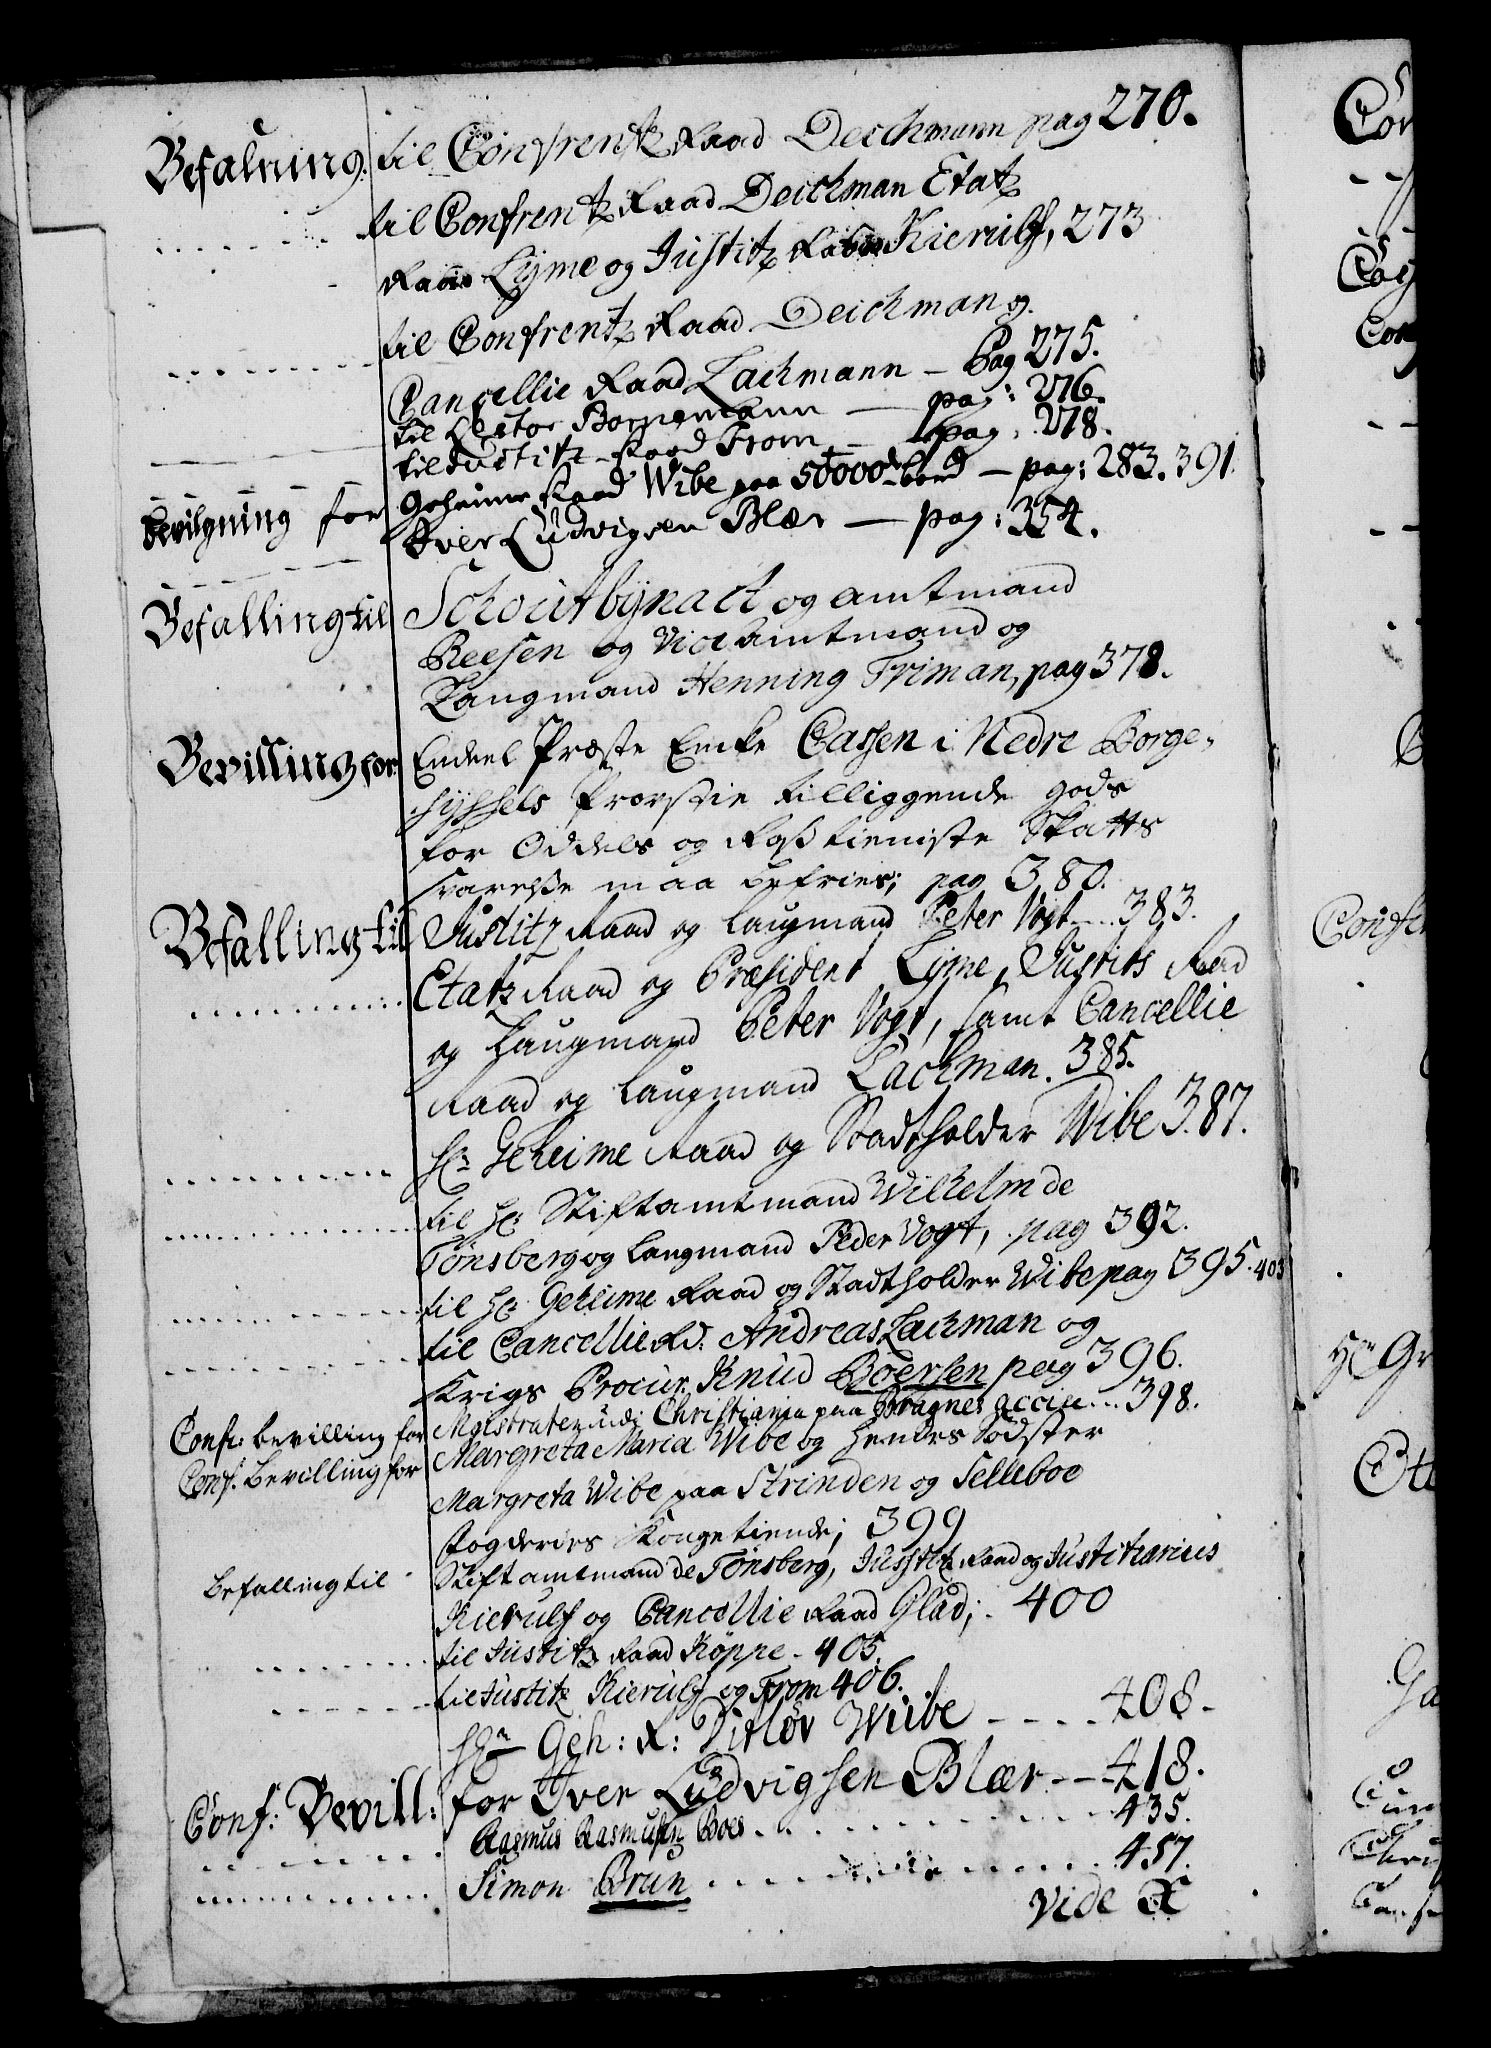 Befalning: til Confrentz Raad Deichmann pag 270.
til Confrentz Raad Deichman Etatz
Raad Lÿme og Justitz Raad Kierulf, 273
til Confrentz Raad Deichman og
Cancellie Raad Lachmann – Pag 275.
til Rector Bornemann — pag: 276.
til Justitz Raad From – pag. 278.
bevilgning for Geheime Raad Wibe paa 50000 bord – pag: 283. 391.
Iver Ludvigsen Blær — pag: 354.
Befalling til Schoutbynact og amtmand
Reesen og Vice Amtmand og
Laugmand Henning Friman, pag 378.
Bevilling for Endeel Præste Encke Cassen i Nedre Borge-
syssels Provstie tilliggende gods
for Oddels og Rosstieniste Skatts
svarelse maa befries; pag 380.
Befalling til Justitz Raad og Laugmand Peter Vogt .... 383.
Etatz Raad og Præsident Lyme, Justits Raad
og Laugmand Peter Vogt, samt Cancellie
Raad og Laugmand Lachman. 385.
Hr: Geheime Raad og Stadtholder Wibe 387.
til Hr: Stiftamtmand Wilhelm de
Tønsberg og Laugmand Peder Vogt, pag 392.
til Hr: Geheime Raad og Stadtholder Wibe pag 395. 403
til Cancellie Rd: Andreas Lachman og
Krigs Procur. Knud Boersen pag 396.
Conf: bevilling for Magistraten udi Christiania paa Bragnes accise ... 398.
Conf: Bevilling for Margreta Maria Wibe og hendes Sødster
Margreta Wibe paa Strinden og Selleboe
Fogderies Kongetiende; 399
befalling til Stiftamtmand de Tønsberg, Justitz Raad og Justitiarius
Kierulf og Cancellie Raad Glad; 400
til Justitz Raad Köppe - 405.
til Justitz Kierulf og From 406.
Hr Geh: R: Ditløv Wibe - - - - 408-
Conf: Bevill: for Iver Ludvigsen Blær - - - 418.
Rasmus Rasmusen Boes . . . . . . 435.
Simon Brun . . . . . . 457.
vide X
Hr Gr